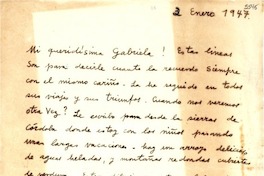 2 Enero 1947.
Mi queridísima Gabriela! Estas lineas
son para decirle cuanto la recuerdo siempre
con el mismo cariño. La he seguido en todos
sus viajes y sus triunfos. Cuando nos veremos
otra vez? Le escribo para desde la sierras de
Córdoba donde estoy con los niños pasando
unas largas vacaciones. hay un arroyo delicioso,
de aguas heladas, y montañas redondas cubiertas
de